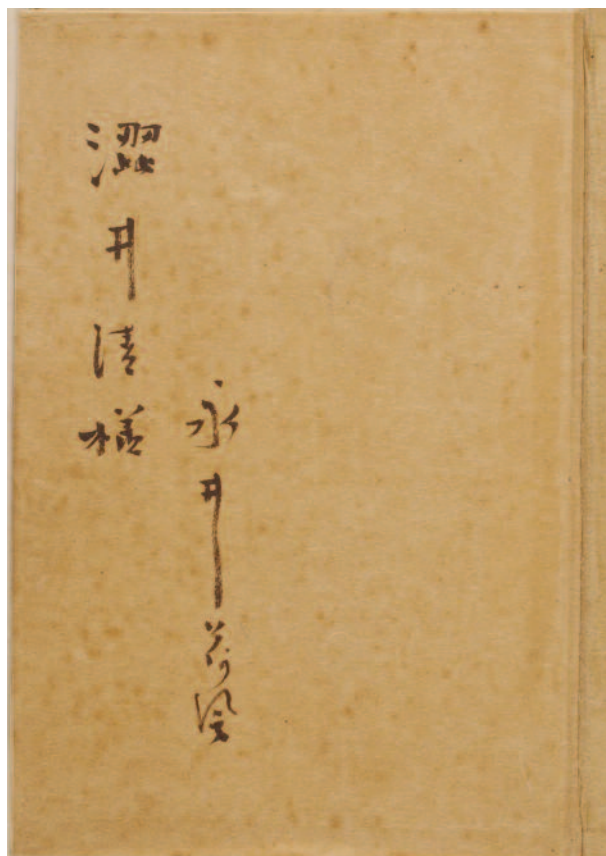 永井荷風
澀井清様